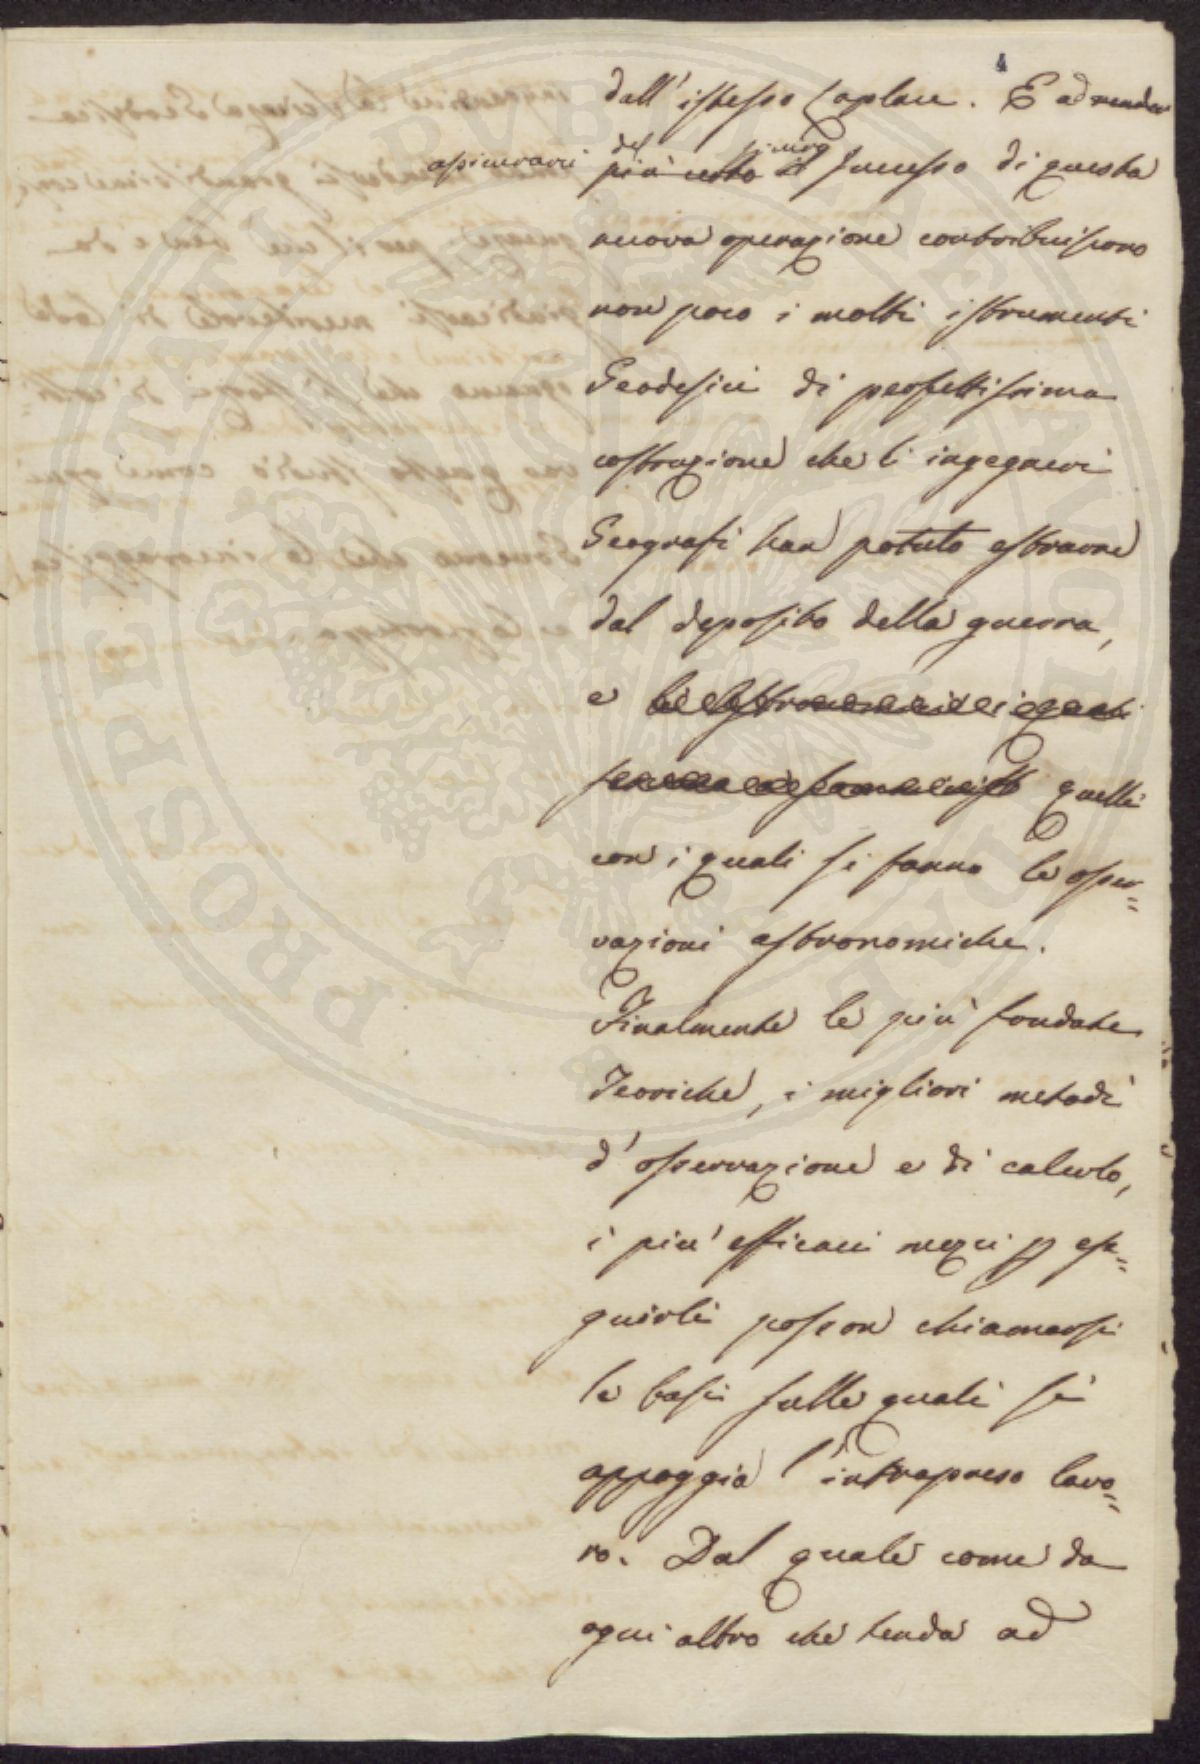 4
dall'istesso Laplace. E ad render
assicurarci del
più certo il successo di questa
nuova operazione contribuiscono
non poco i molti istrumenti
Geodesici di perfettissima
costruzione che l'ingegneri
Geografi han potuto estrarre
dal deposito della guerra,
e
quelli
con i quali si fanno le osser=
vazioni astronomiche.
Finalmente le più fondate
Teoriche, i migliori metodi
d'osservazione e di calcolo,
i più efficaci mezzi p ese=
guirli posson chiamarsi
le basi sulle quali si
appoggia l'intrapreso lavo=
ro. Dal quale come da
ogni altro che tenda ad
PROSPERITATI PUBLICAE AUGENDAE